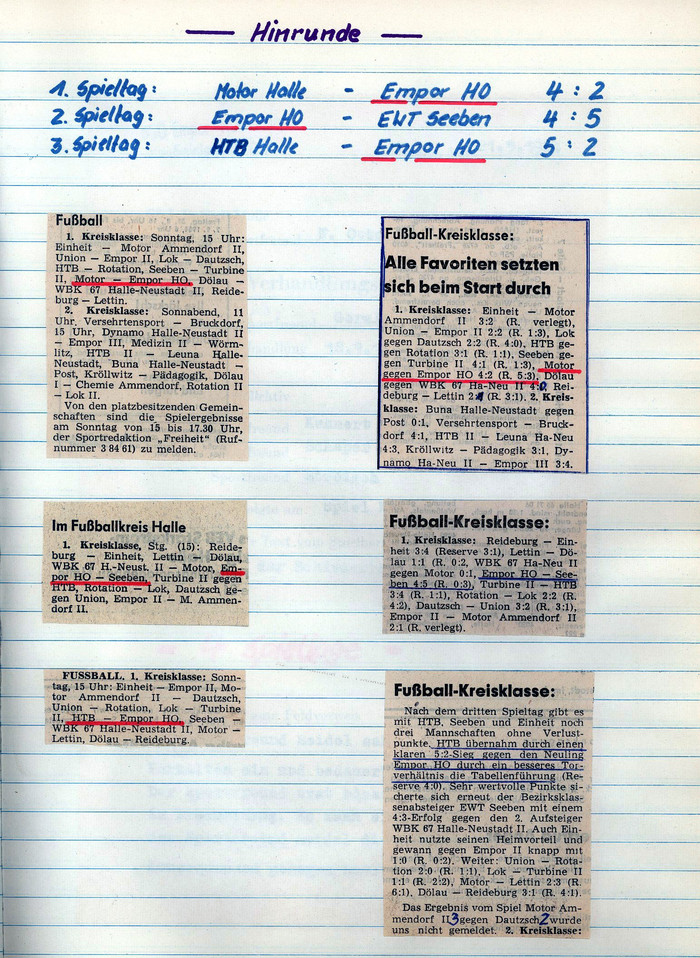 — Hinrunde —
1. Spieltag: Motor Halle - Empor HO 4 : 2
2. Spieltag: Empor HO - EWT Seeben 4 : 5
3. Spieltag: HTB Halle - Empor HO 5 : 2
Fußball
1. Kreisklasse: Sonntag, 15 Uhr:
Einheit — Motor Ammendorf II,
Union — Empor II, Lok — Dautzsch,
HTB — Rotation, Seeben — Turbine
II, Motor — Empor HO, Dölau —
WBK 67 Halle-Neustadt II, Reide-
burg — Lettin.
2. Kreisklasse: Sonnabend, 11
Uhr, Versehrtensport — Bruckdorf,
15 Uhr, Dynamo Halle-Neustadt II
— Empor III, Medizin II — Wörm-
litz, HTB II — Leuna Halle-
Neustadt, Buna Halle-Neustadt —
Post, Kröllwitz — Pädagogik, Dölau
I — Chemie Ammendorf, Rotation II
— Lok II.
Von den platzbesitzenden Gemein-
schaften sind die Spielergebnisse
am Sonntag von 15 bis 17.30 Uhr,
der Sportredaktion „Freiheit" (Ruf-
nummer 3 84 61) zu melden.
Fußball-Kreisklasse:
Alle Favoriten setzten
sich beim Start durch
1. Kreisklasse: Einheit — Motor
Ammendorf II 3:2 (R. verlegt),
Union — Empor II 2:2 (R. 1:3), Lok
gegen Dautzsch 2:2 (R. 4:0), HTB
gegen Rotation 3:1 (R. 1:1), Seeben ge-
gen Turbine II 4:1 (R. 1:3), Motor
gegen Empor HO 4:2 (R. 5:3), Dölau
gegen WBK 67 Ha-Neu II 4:0, Rei-
deburg — Lettin 2:1 (R. 3:1). 2. Kreis-
klasse: Buna Halle-Neustadt gegen
Post 0:1, Versehrtensport — Bruck-
dorf 4:1, HTB II — Leuna Ha-Neu
4:3, Kröllwitz — Pädagogik 3:1, Dy-
namo Ha-Neu II — Empor III 3:4.
Im Fußballkreis Halle
1. Kreisklasse, Stg. (15): Reide-
burg — Einheit, Lettin — Dölau,
WBK 67 H.-Neust. II — Motor, Em-
por HO — Seeben, Turbine II gegen
HTB, Rotation — Lok, Dautzsch ge-
gen Union, Empor II — M. Ammen-
dorf II.
Fußball-Kreisklasse:
1. Kreisklasse: Reideburg — Ein-
heit 3:4 (Reserve 3:1), Lettin — Dö-
lau 1:1 (R. 0:2, WBK 67 Ha-Neu II
gegen Motor 0:1, Empor HO — See-
ben 4:5 (R. 0:3), Turbine II — HTB
3:4 (R. 1:1), Rotation — Lok 2:2 (R.
4:2), Dautzsch — Union 3:2 (R. 3:1),
Empor II — Motor Ammendorf II
2:1 (R. verlegt).
FUSSBALL. 1. Kreisklasse: Sonn-
tag, 15 Uhr: Einheit — Empor II, Mo-
tor Ammendorf II — Dautzsch,
Union — Rotation, Lok — Turbine
II, HTB — Empor HO, Seeben —
WBK 67 Halle-Neustadt II, Motor —
Lettin, Dölau — Reideburg.
Fußball-Kreisklasse:
Nach dem dritten Spieltag gibt es
mit HTB, Seeben und Einheit noch
drei Mannschaften ohne Verlust-
punkte. HTB übernahm durch einen
klaren 5:2-Sieg gegen den Neuling
Empor HO durch ein besseres Tor-
verhältnis die Tabellenführung (Re-
serve 4:0). Sehr wertvolle Punkte si-
cherte sich erneut der Bezirksklas-
senabsteiger EWT Seeben mit einem
4:3-Erfolg gegen den 2. Aufsteiger
WBK 67 Halle-Neustadt II. Auch Ein-
heit nutzte seinen Heimvorteil und
gewann gegen Empor II knapp mit
1:0 (R. 0:2). Weiter: Union — Rota-
tion 2:0 (R. 1:1), Lok — Turbine II
1:1 (R. 2:2), Motor — Lettin 2:3 (R.
6:1), Dölau — Reideburg 3:1 (R. 4:1).
Das Ergebnis vom Spiel Motor Am-
mendorf II 3 gegen Dautzsch 2 wurde
uns nicht gemeldet. 2. Kreisklasse: